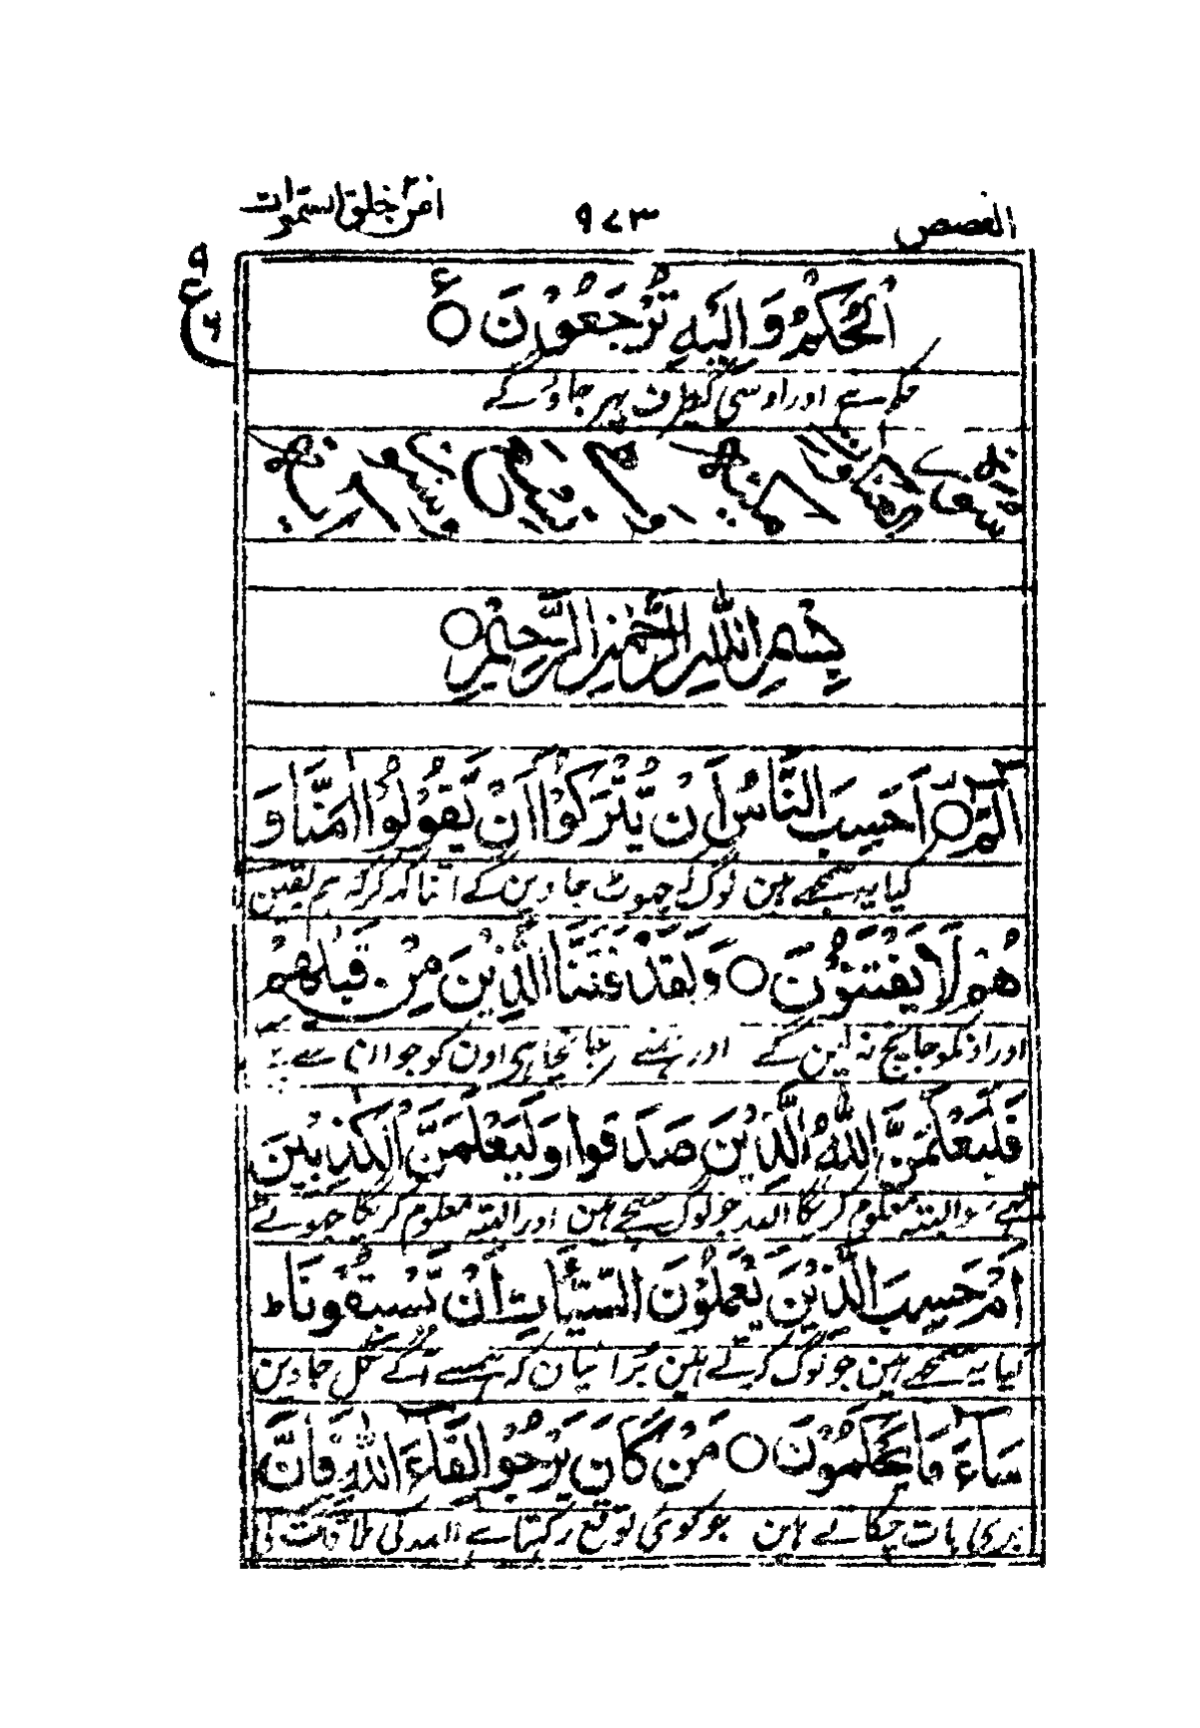 القصص ۹۷۳ امّن خلق السمٰوات
۹
ع
الْحُكْمُ وَاِلَيْهِ تُرْجَعُوْنَ ○
حکم ہے اور اوسی کیطرف پہر جاؤ گے
بِسْمِ اللّٰهِ الرَّحْمٰنِ الرَّحِيْمِ ○
الٓمّٓ ○ اَحَسِبَ النَّاسُ اَنْ يُّتْرَكُوْٓا اَنْ يَّقُوْلُوْٓا اٰمَنَّا وَ
کیا یہ سمجھے ہین لوگ کہ چہوٹ جاوین گے اتنا کہہ کر کہ ہم یقین
هُمْ لَا يُفْتَنُوْنَ ○ وَلَقَدْ فَتَنَّا الَّذِيْنَ مِنْ قَبْلِهِمْ
اور اونکو جانچ نہ لین گے اور ہمنے جانچا ہی اون کو جو ان سے
فَلَيَعْلَمَنَّ اللّٰهُ الَّذِيْنَ صَدَقُوْا وَلَيَعْلَمَنَّ الْكٰذِبِيْنَ
سو البتہ معلوم کریگا اللہ جو لوگ سچے ہین اور البتہ معلوم کریگا جہوٹے
اَمْ حَسِبَ الَّذِيْنَ يَعْمَلُوْنَ السَّيِّاٰتِ اَنْ يَّسْبِقُوْنَا ط
کیا یہ سمجھے ہین جو لوگ کرتے ہین برائیان کہ ہمسے آگے نکل جاوین
سَآءَ مَا يَحْكُمُوْنَ ○ مَنْ كَانَ يَرْجُوْا لِقَآءَ اللّٰهِ فَاِنَّ
بری بات چکاتے ہین جو کوئی توقع رکہتا ہے اللہ کی ملاقات کی